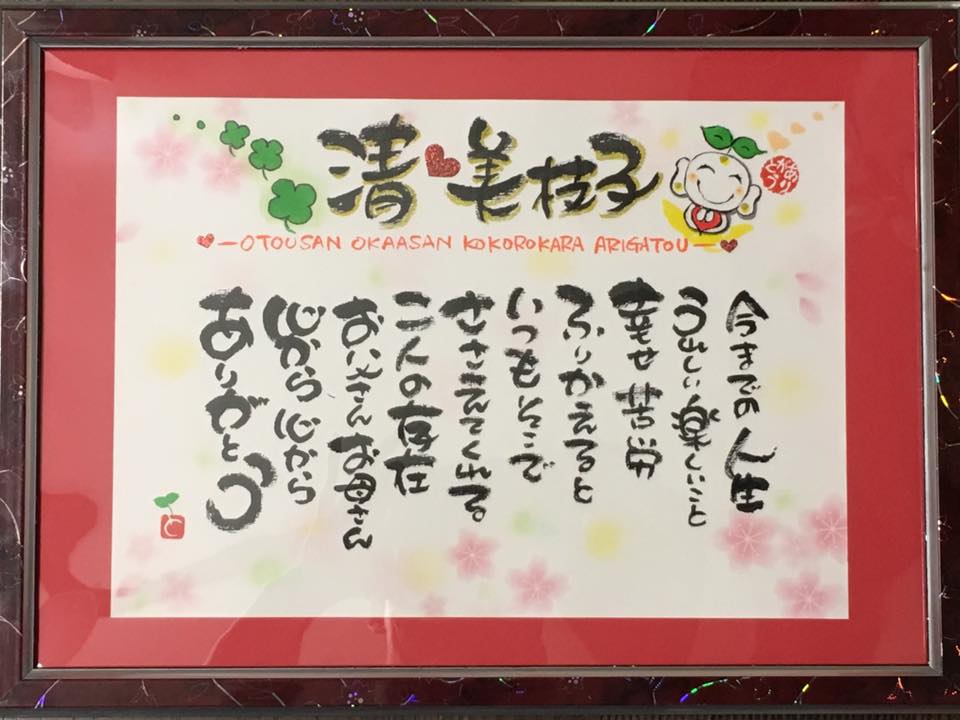 清♥美枝子
OTOUSAN OKAASAN KOKOROKARA ARIGATOU
今までの人生
うれしい楽しいこと
幸せ 苦労
ふりかえると
いつもそこで
ささえてくれる。
二人の存在
お父さんお母さん
心から心から
ありがとう
ありがとう